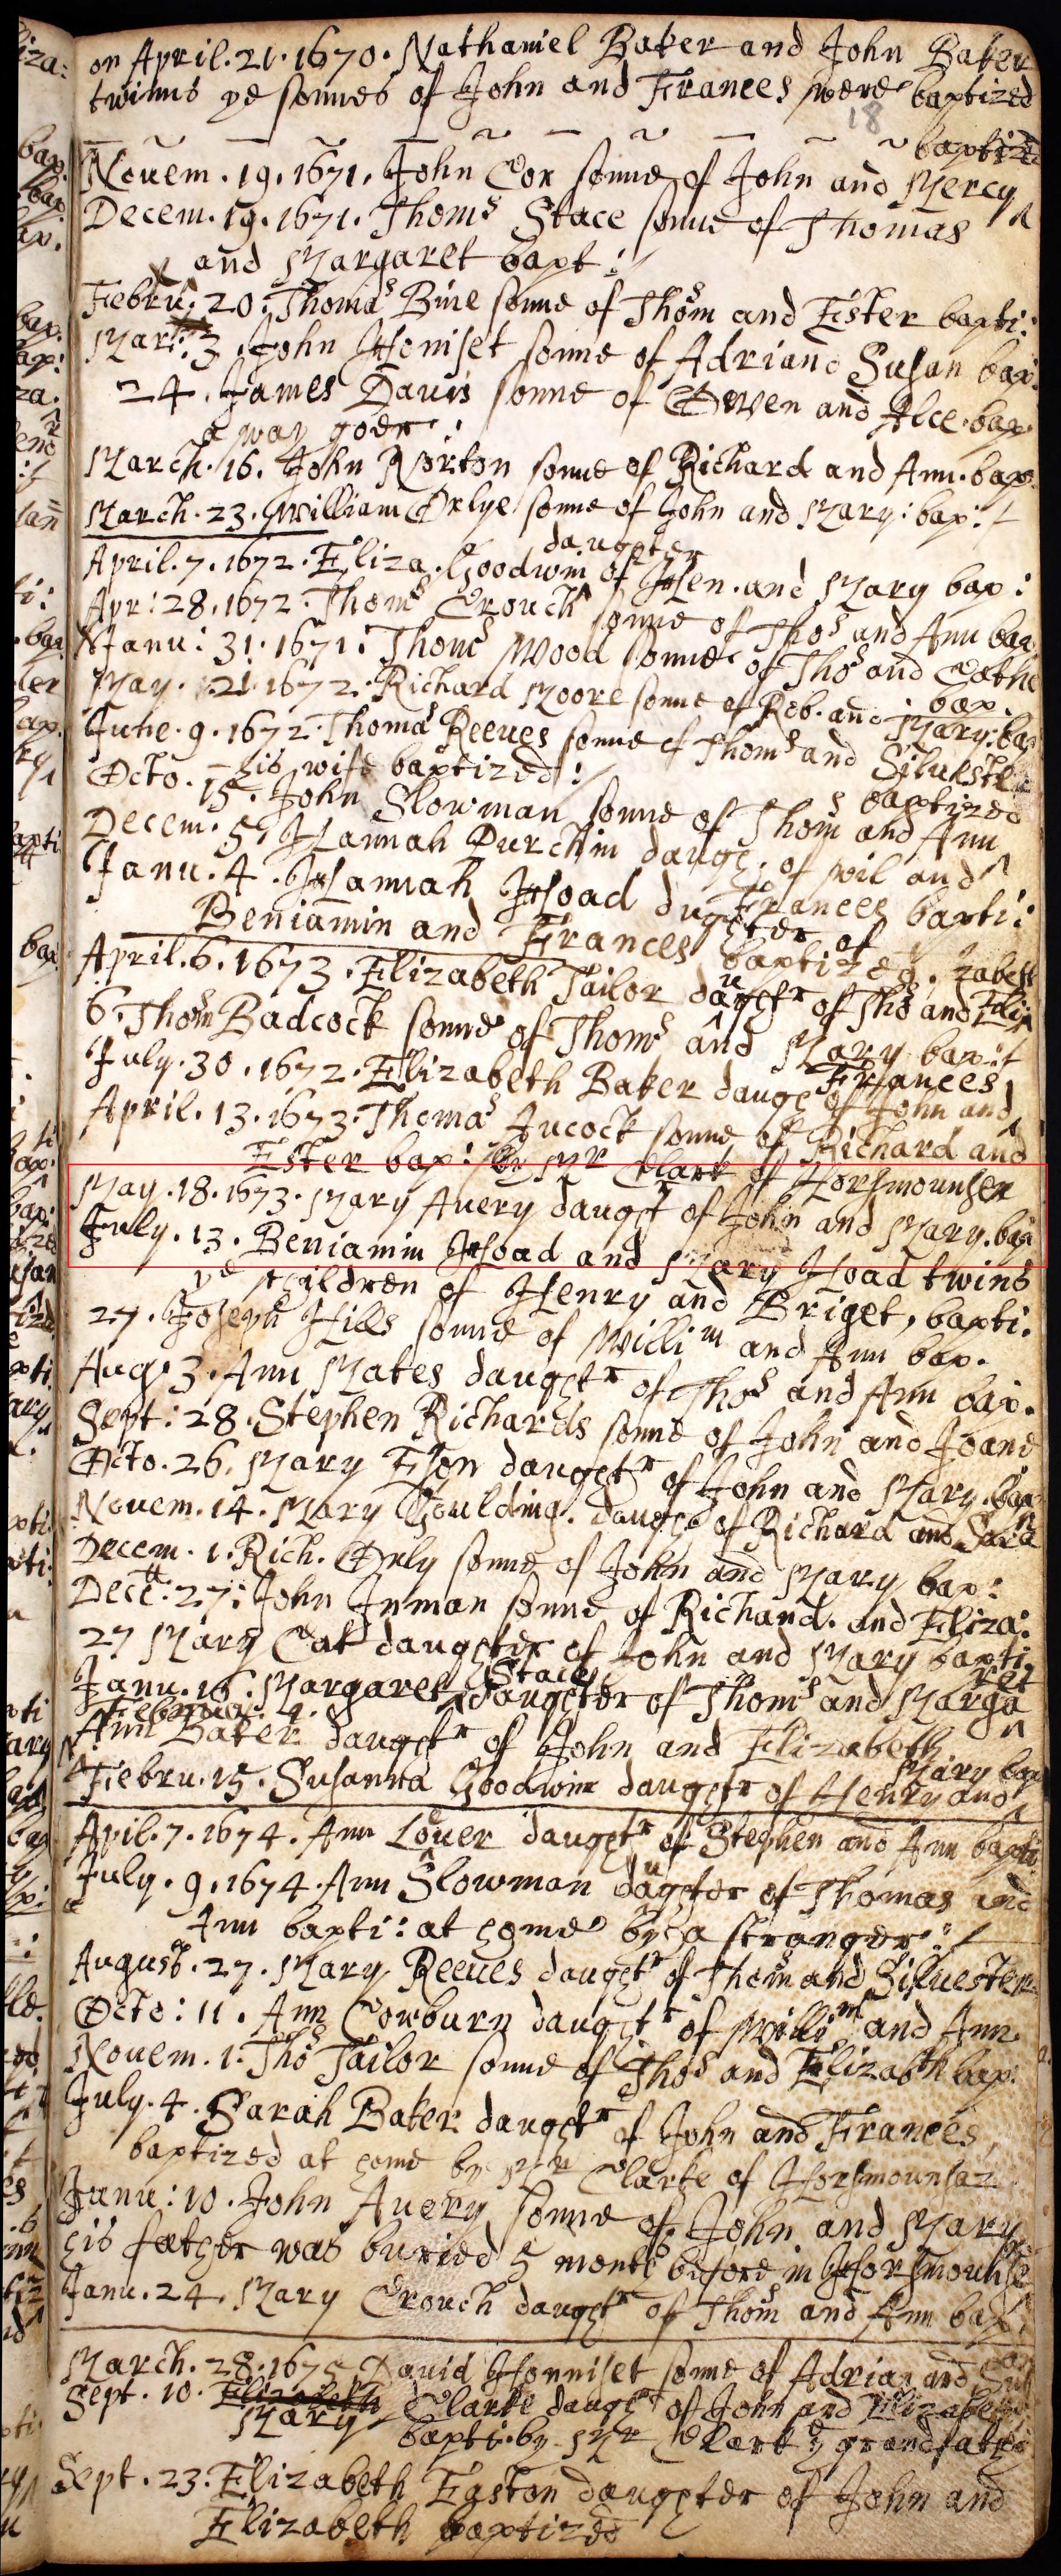 on April. 21. 1670. Nathaniel Baker and John Baker
twinns ye sonnes of John and Frances were baptized
18
baptized
Nouem. 19. 1671. John Cox sonne of John and Mercy
Decem. 19. 1671. Thoms Stace sonne of Thomas
and Margaret bapt:
Febru: 20: Thomas Bine sonne of Thom and Ester bapti:
Mar: 3. John Honiset sonne of Adri and Susan bap:
24. James Dauis sonne of Owen and Alce. bap.
a way goer:
March. 16. John Norton sonne of Richard and Ann. bap
March. 23. William Orlye sonne of John and Mary: bap:
daughter
April. 7. 1672. Eliza. Goodwin of Hen. and Mary bap:
Apr: 28. 1672. Thoms Crouch sonne of Thos and Ann bap
Janu: 31. 1671: Thoms Wood sonne of Thos and Cathe
bap.
May. 21. 1672. Richard Moore sonne of Rob. and Mary. bap
June. 9. 1672. Thomas Reeues sonne of Thoms and Siluester
his wife baptized:
baptized
Octo. 15. John Slowman sonne of Thom and Ann
Decem. 5. Hannah Durchin daugh. of wil and
Frances bapti:
Janu. 4. Hannah Hoad dughter of
Beniamin and Frances baptized.
zabeth
April. 6. 1673. Elizabeth Tailor daughtr of Tho and Eli
6. Thom Badcock sonne of Thoms and Mary bap:
Frances
July. 30. 1672. Elizabeth Baker daugh of John and
April. 13. 1673. Thomas Aucock sonne of Richard and
Ester bap: by Mr Clark of Horsmounsen
May. 18. 1673. Mary Auery daught of John and Mary. bap
July. 13. Beniamin Hoad and Mary Hoad twins
ye children of Henry and Briget, bapti.
27. Joseph Hills sonne of Willim and Ann bap.
Aug. 3. Ann Mates daughtr of Thos and Ann bap.
Sept: 28. Stephen Richards sonne of John and Joane
Octo. 26. Mary Eson daughtr of John and Mary. bap
Nouem. 14. Mary Goulding. daugh of Richard and Sara
Decem. 1. Rich. Orly sonne of John and Mary bap:
Dece. 27: John Inman sonne of Richard. and Eliza:
27 Mary Cat daughter of John and Mary bapti
Stace
ret
Janu. 16: Margaret daughter of Thoms and Marga
Februar. 4.
Ann Baker daughtr of John and Elizabeth
Mary bap
Febru. 15. Susanna Goodwin daughtr of Henry and
April. 7. 1674. Ann Louer daughtr of Stephen and Ann bapti
July. 9. 1674. Ann Slowman daughter of Thomas and
Ann bapti: at home by a stranger:
August. 27. Mary Reeues daughtr of Thom and Siluester
Octo: 11. Ann Cowburn daughtr of Willim and Ann
Nouem. 1. Thos Tailor sonne of Thos and Elizabth bap.
July. 4. Sarah Baker daughtr of John and Frances
baptized at home by Mr Clarke of Horsmounsaz
Janu: 10. John Auery sonne of John and Mary
his father was buried 5 monts before in Horsmounse
Janu. 24. Mary Crouch daughtr of Thom and Ann bap
March. 28. 1675 Dauid Honniset sonne of Adrian and Su
Sept. 10. Elizabeth Clarke daughtr of John and Elizabeth
Mary bapti. by Mr Clark ye grandfather
Sept. 23. Elizabeth Easton daughter of John and
Elizabeth baptized